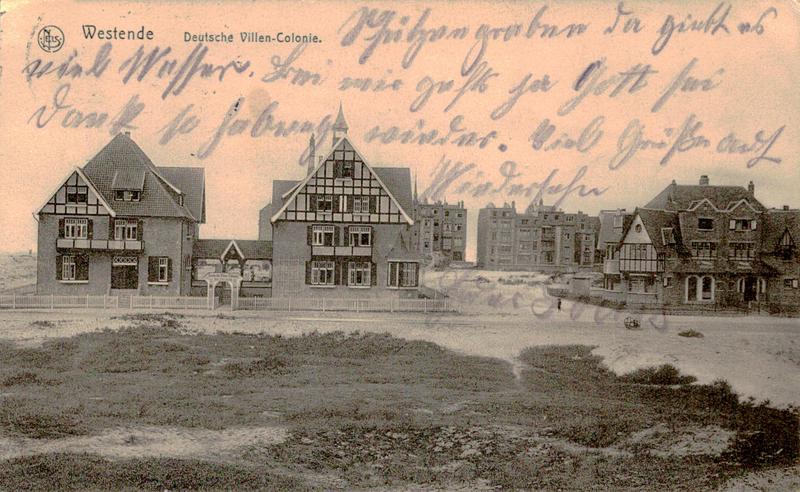 NELS
Westende Deutsche Villen-Colonie.
Schützengraben da giebt es
viel Wasser. Bei mir geht ja Gott sei
Dank so haben wieder. Viel Grüße auf
Wiedersehn